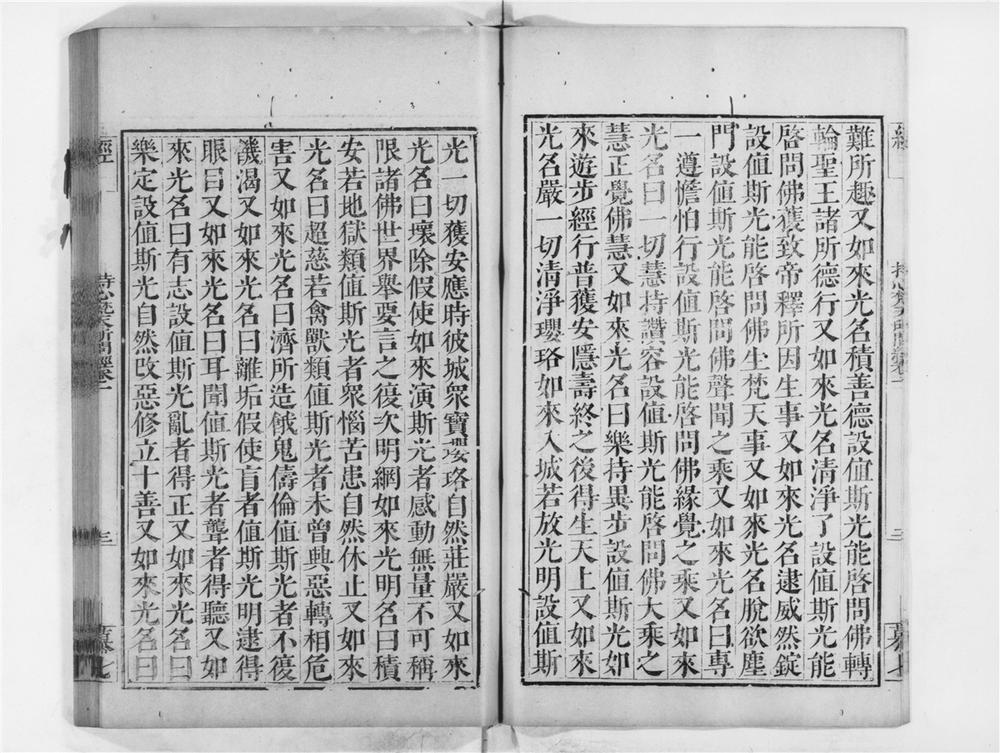 難所趣又如來光名積善德設值斯光能啓問佛轉
輪聖王諸所德行又如來光名清淨了設值斯光能
啓問佛獲致帝釋所因生事又如來光名逮威然錠
設值斯光能啓問佛生梵天事又如來光名脫欲塵
門設值斯光能啓問佛聲聞之乘又如來光名曰專
一遵憺怕行設值斯光能啓問佛緣覺之乘又如來
光名曰一切慧持讚容設值斯光能啓問佛大乘之
慧正覺佛慧又如來光名曰樂持異步設值斯光如
來遊步經行普獲安隱壽終之後得生天上又如來
光名嚴一切清淨瓔珞如來入城若放光明設值斯
光一切獲安應時彼城眾寶瓔珞自然莊嚴又如來
光名曰壞除假使如來演斯光者感動無量不可稱
限諸佛世界舉要言之復次明網如來光明名曰積
安若地獄類值斯光者眾惱苦患自然休止又如來
光名曰超慈若禽獸類值斯光者未曾興惡轉相危
害又如來光名曰濟所造餓鬼儔倫值斯光者不復
饑渴又如來光名曰離垢假使盲者值斯光明逮得
眼目又如來光名曰耳聞值斯光者聾者得聽又如
來光名曰有志設值斯光亂者得正又如來光名曰
樂定設值斯光自然改惡修立十善又如來光名曰
經
持心梵天所問經卷一
三